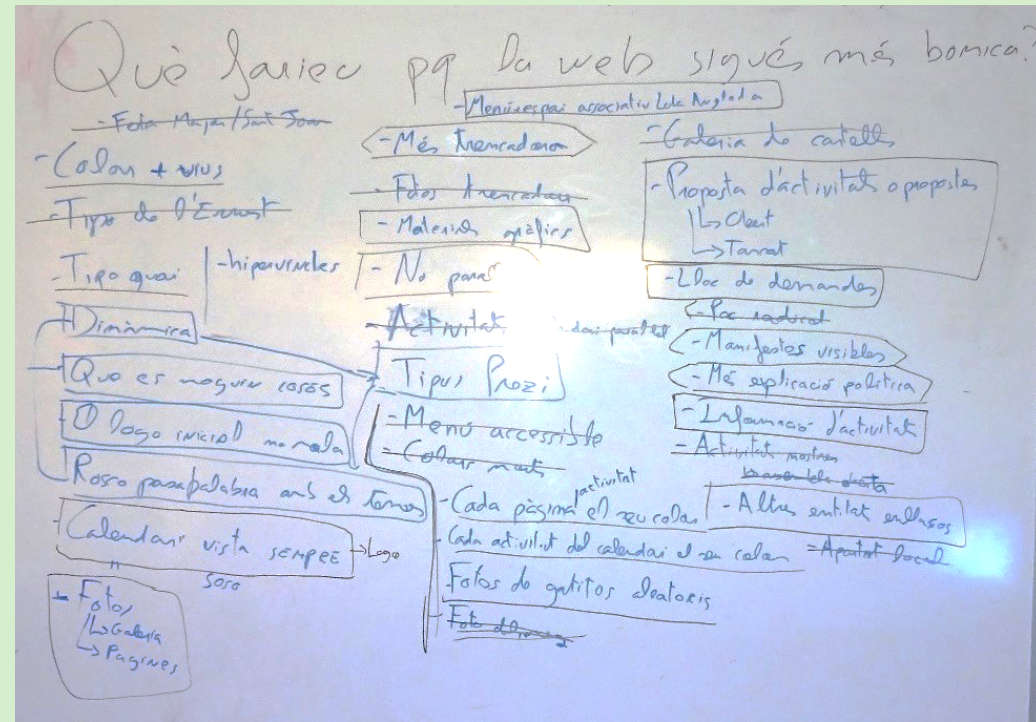 Què farieu pq la web sigués més bonica?
- Menú espai associatiu Lola Anglada
- Colors + vius
- Tipo de l'Ernest
- Tipo guai
- hipervincles
- Dinàmica
- Que es moguin coses
- El logo inicial mo mola
- Rosco pasapalabra amb els temes
- Calendari vista SEMPRE → Logo
Soso
- Fotos
↳ Galeria
↳ Pàgines
- Més trencadora
- Fotos trencadores
- Materials gràfics
- No parar
- Activitat
- Tipus Prezi
- Menú accessible
- Colors
- Cada pàgina el seu color
activitat
- Cada activitat del calendari el seu color
Fotos de gatitos aleatoris
- Galeria de cartells
- Proposta d'activitats o propostes
↳ Obert
↳ Tancat
- Lloc de demandes
- Poc radical
- Manifestos visibles
- Més explicació política
- Informació d'activitats
- Activitats mostren
- Altres entitats enllaços
- Apartat local